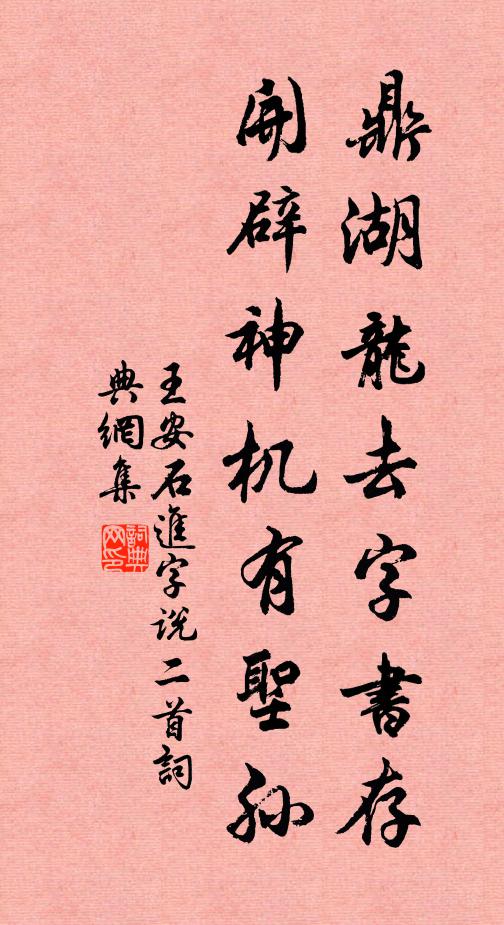 鼎湖龍去字書存
開辟神机有聖孫
王安石進字說二首詞
典網集
詞典
网印